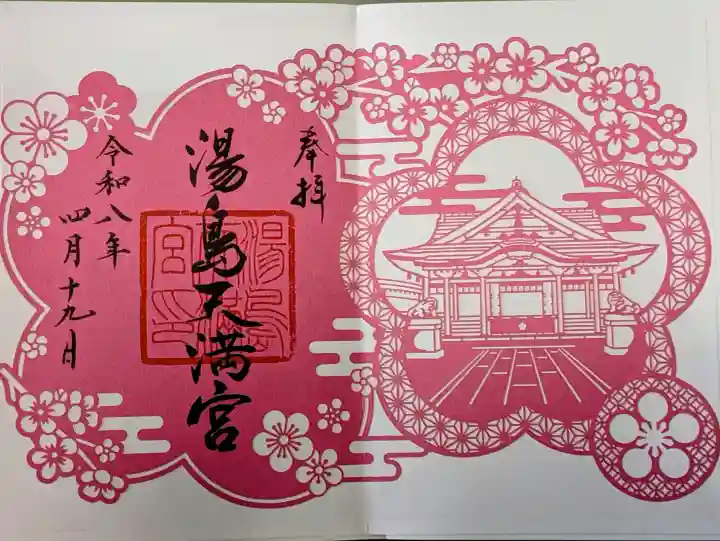 奉拝
湯島天満宮
令和八年
四月十九日